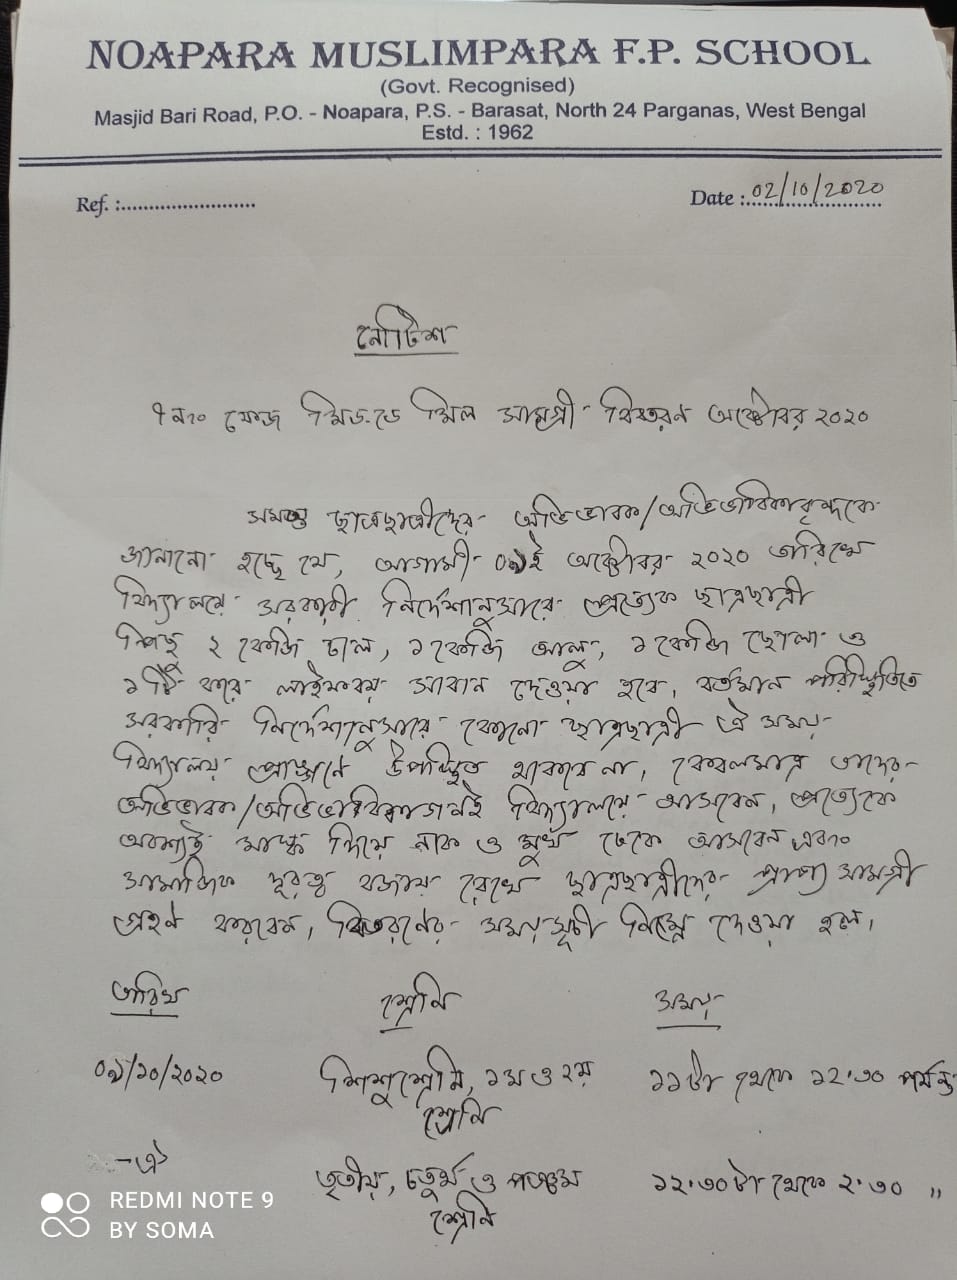 NOAPARA MUSLIMPARA F.P. SCHOOL
(Govt. Recognised)
Masjid Bari Road, P.O. - Noapara, P.S. - Barasat, North 24 Parganas, West Bengal
Estd. : 1962
Ref. :........................
Date :..02/10/2020
নোটিশ
৭ নং ফেজ মিড.ডে মিল সামগ্রী বিতরন অক্টোবর ২০২০
সমস্ত ছাত্রছাত্রীদের অভিভাবক/অভিভাবিকাবৃন্দকে
জানানো হচ্ছে যে, আগামী ০৯ই অক্টোবর ২০২০ তারিখে
বিদ্যালয়ে সরকারী নির্দেশানুসারে প্রত্যেক ছাত্রছাত্রী
পিছু ২ কেজি চাল, ১ কেজি আলু, ১ কেজি ছোলা ও
১টি করে লাইফবয় সাবান দেওয়া হবে, বর্তমান পরিস্থিতিতে
সরকারি নির্দেশানুসারে কোনো ছাত্রছাত্রী ঐ সময়
বিদ্যালয় প্রাঙ্গনে উপস্থিত থাকবে না, কেবলমাত্র তাদের
অভিভাবক/অভিভাবিকাগনই বিদ্যালয়ে আসবেন, প্রত্যেকে
অবশ্যই মাস্ক দিয়ে নাক ও মুখ ঢেকে আসবেন এবং
সামাজিক দূরত্ব বজায় রেখে ছাত্রছাত্রীদের প্রাপ্য সামগ্রী
গ্রহন করবেন, বিতরনের সময়সূচী নিম্নে দেওয়া হল,
তারিখ শ্রেনি সময়
০৯/১০/২০২০ শিশুশ্রেনি, ১ম ও ২য় ১১টা থেকে ১২.৩০ পর্যন্ত
শ্রেনি
-ঐ তৃতীয়, চতুর্থ ও পঞ্চম ১২.৩০টা থেকে ২.৩০ "
শ্রেনি
REDMI NOTE 9
BY SOMA